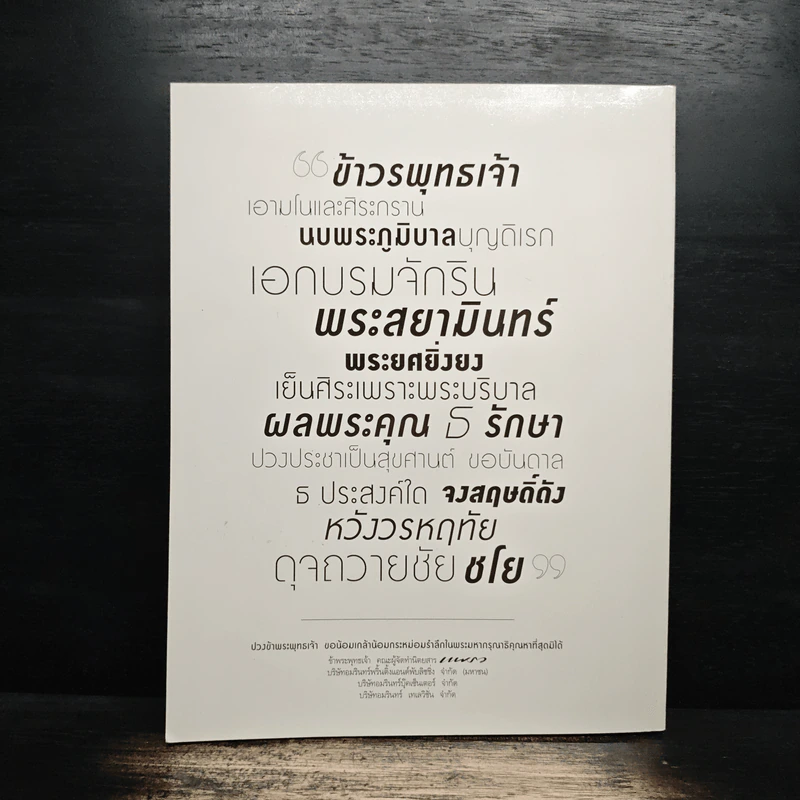 “ ข้าวรพุทธเจ้า
เอามโนและศิระกราน
นบพระภูมิบาลบุญดิเรก
เอกบรมจักริน
พระสยามินทร์
พระยศยิ่งยง
เย็นศิระเพราะพระบริบาล
ผลพระคุณ ธ รักษา
ปวงประชาเป็นสุขศานต์ ขอบันดาล
ธ ประสงค์ใด จงสฤษดิ์ดัง
หวังวรหฤทัย
ดุจถวายชัย ชโย ”
ปวงข้าพระพุทธเจ้า ขอน้อมเกล้าน้อมกระหม่อมรำลึกในพระมหากรุณาธิคุณหาที่สุดมิได้
ข้าพระพุทธเจ้า คณะผู้จัดทำนิตยสาร แพรว
บริษัทอมรินทร์พริ้นติ้งแอนด์พับลิชชิ่ง จำกัด (มหาชน)
บริษัทอมรินทร์บุ๊คเซ็นเตอร์ จำกัด
บริษัทอมรินทร์ เทเลวิชัน จำกัด